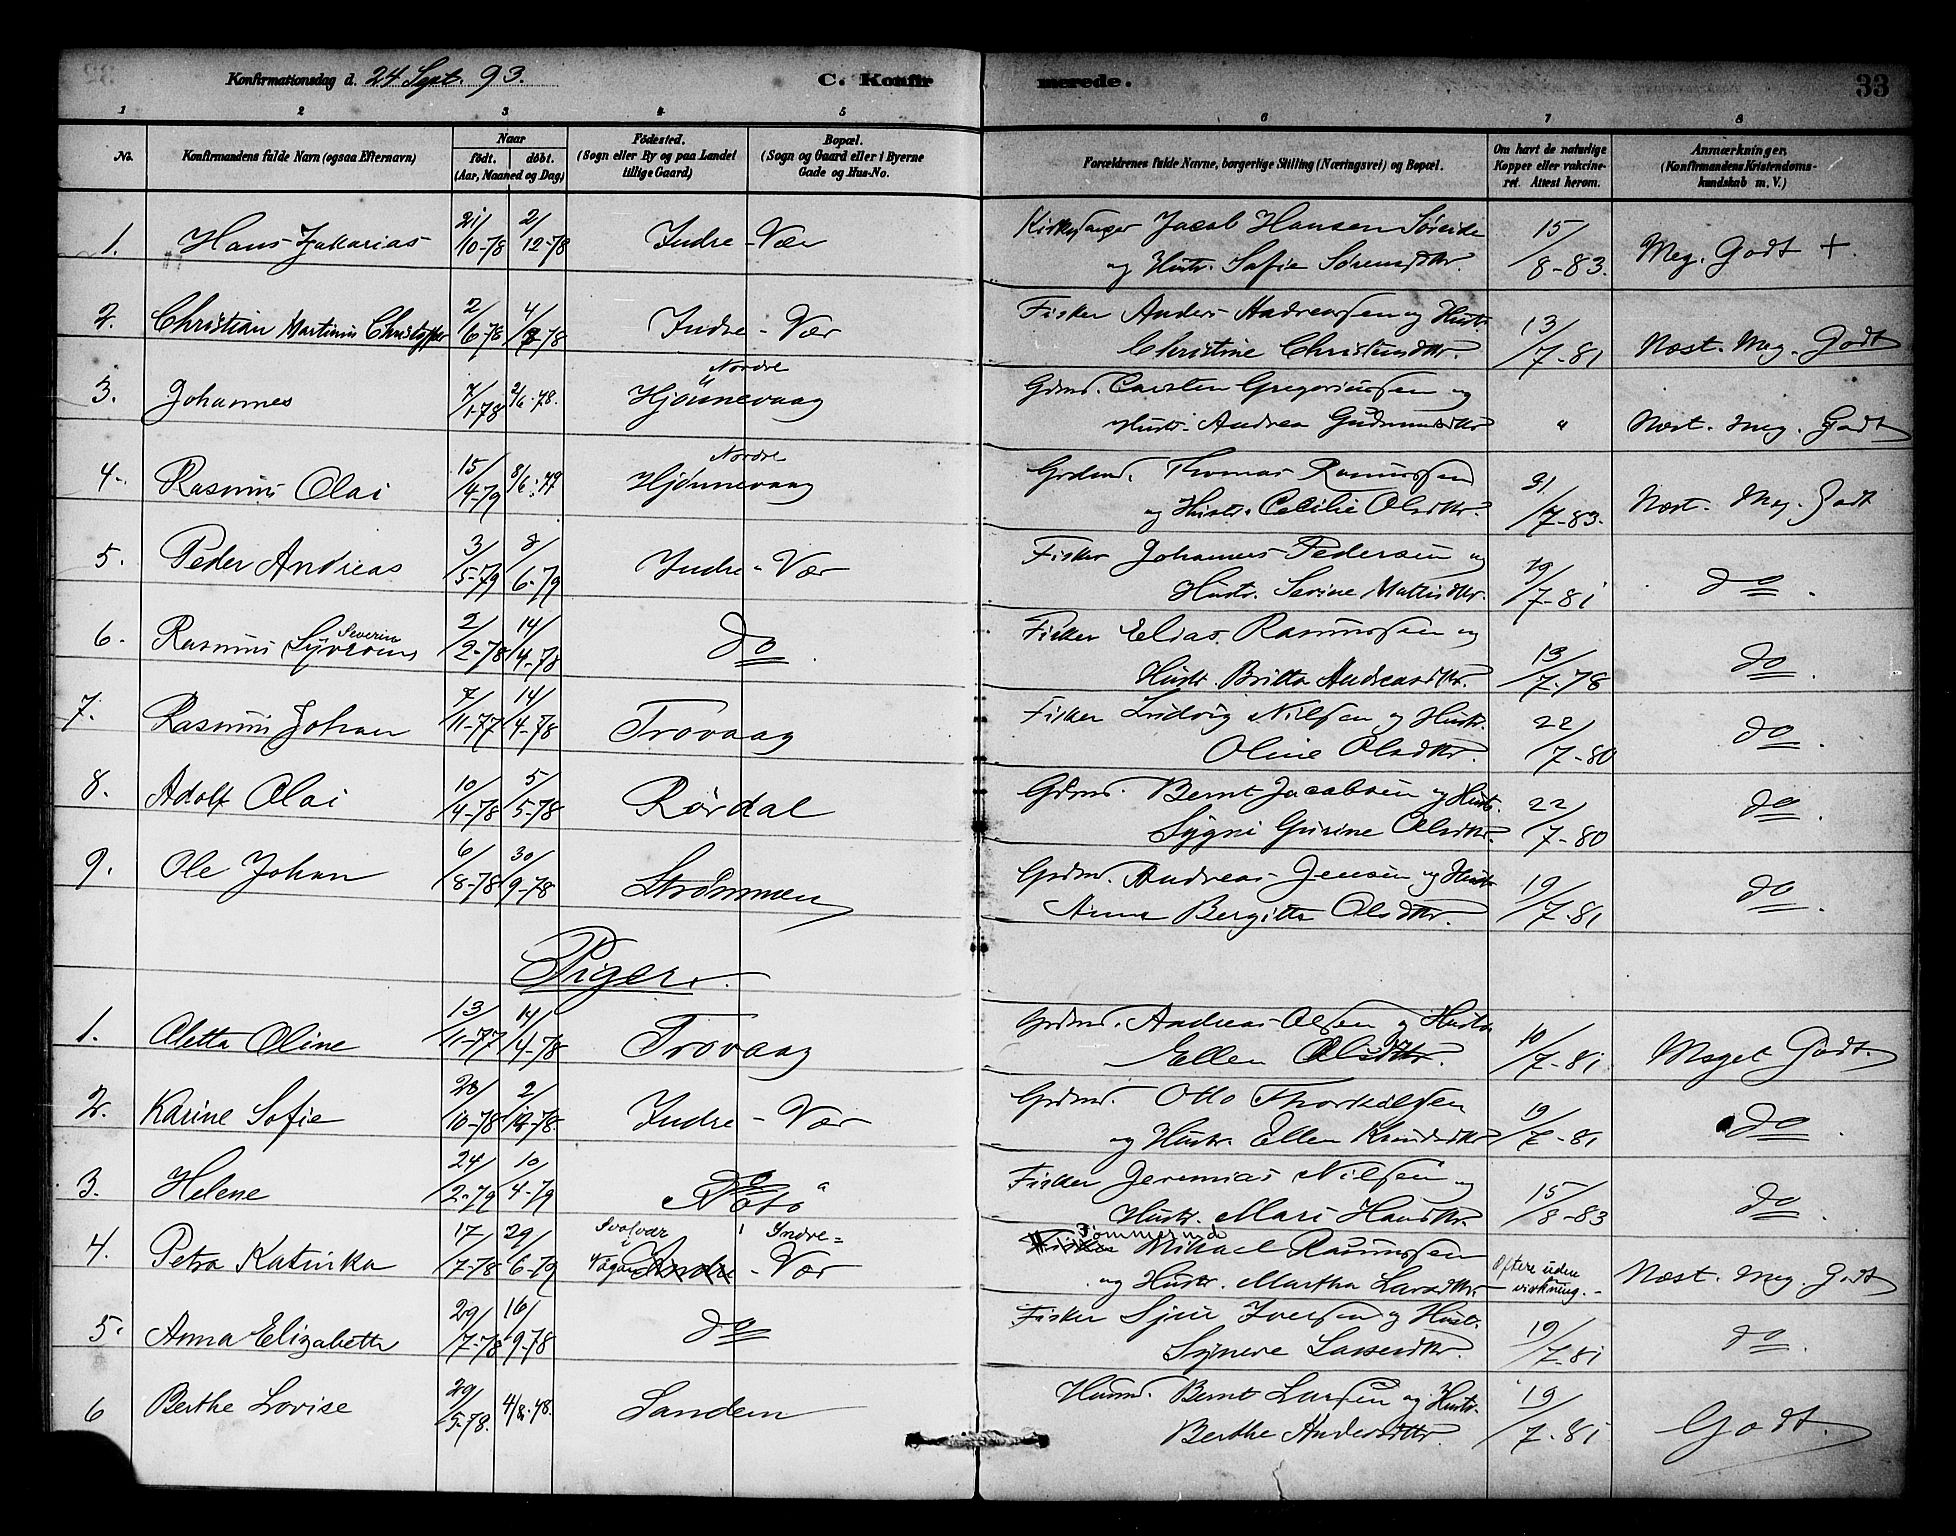 Konfirmationsdag d. 24 Sept. 93. C. Konfirmerede. 33
1 2 3 4 5 6 7 8
No. Konfirmandens fulde Navn (ogsaa Efternavn) Naar født. døbt. (Aar, Maaned og Dag) Fødested. (Sogn eller By og paa Landet tillige Gaard) Bopæl. (Sogn og Gaard eller i Byerne Gade og Hus-No. Forældrenes fulde Navne, borgerlige Stilling (Næringsvei) og Bopæl. Om havt de naturlige Kopper eller vakcineret. Attest herom. Anmærkninger. (Konfirmandens Kristendomskundskab m. V.)
1. Hans Zakarias 21/10-78 2/12-78 Indre-Vær Kirkesanger Jacob Hansen Søreide 15/8-83. Meg. Godt +.
og Hustr. Sofie Sørensdtr.
2. Christian Martinus 2/6-78 4/8-78 Indre-Vær Fisker Anders Andreassen og Hustr. 13/7-81 Næst. Meg. Godt
Christine Christensdtr.
3. Johannes 7/1-78 2/6-78. Nordre Hjønnevaag Gdmd. Carsten Gregoriussen og " Næst. Meg. Godt
Hustr. Andrea Gudmundsdtr
4. Rasmus Olai 15/4-79 8/6-79 Nordre Hjønnevaag Grdmd. Thomas Rasmussen 31/7-83. Næst. Meg. Godt
og Hustr. Cecilie Olsdtr.
5. Peder Andreas 3/5-79 8/6-79 Indre-Vær Fisker Johannes Pedersen og 19/7-81 do.
Hustr. Serine
6. Rasmus Severin 2/2-78 14/4-78 do. Fisker Elias Rasmussen og 13/7-78 do.
Hustr. Britta Andreasdtr.
7. Rasmus Johan 7/11-77 14/4-78 Trovaag Fisker Ludvig Nilsen og Hustr. 22/7-80 do.
Oline Olsdtr.
8. Adolf Olai 10/4-78 5/5-78 Rørdal Gdmd. Bernt Jacobsen og Hustr. 22/7-80 do.
Sygni Gurine Olsdtr.
9. Ole Johan 6/8-78 30/9-78 Strømmen Grdmd. Andreas Jensen og Hustr 19/7-81 do.
Anna Bergitta Olsdtr.
Piger.
1. Aletta Oline 13/11-77 14/4-78 Trovaag Grdmd. Andreas Olsen og Hustr 10/7-81 Meget Godt.
Ellen Olsdtr.
2. Karine Sofie 28/10-78 2/12-78. Indre-Vær Grdmd. Otto Thorkilsen 19/7-81 do.
og Hustr. Ellen Knudsdtr
3. Helene 24/2-79 10/4-79 Fisker Jeremias Nilsen og 15/8-83 do.
Hustr. Mari Hansdtr.
4. Petra Katinka 17/7-78 29/6-79 Svolvær i Vågan Indre Indre-Vær Fisker Tømmermd Mikael Rasmussen Oftere uden virkning. Næst. Meg. Godt
og Hustr. Martha Larsdtr.
5. Anna Elizabeth 29/7-78 16/9-78 do Fisker Sjur Iversen og Hustr. 19/7-81 do.
Synneve Lassesdtr.
6 Berthe Lovise 29/5-78. 4/8-78. Sanden Husmd. Bernt Larsen og Hustr. 19/7-81 Godt.
Berthe Andersdtr.